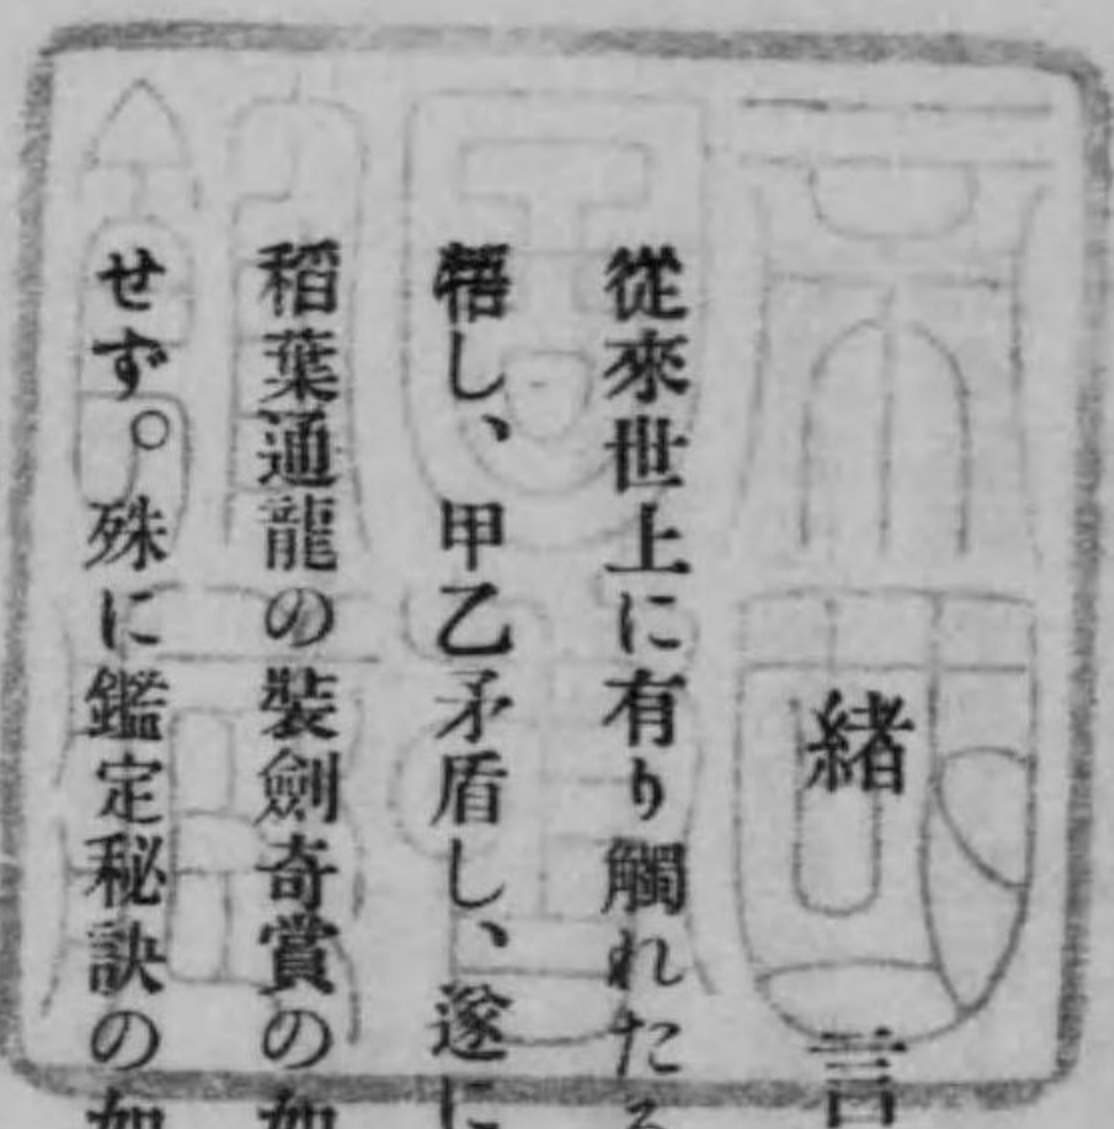 緒言
從來世上に有り觸れたる
牾し、甲乙矛盾し、遂に
稻葉通龍の裝劍奇賞の如
せず。殊に鑑定秘訣の如